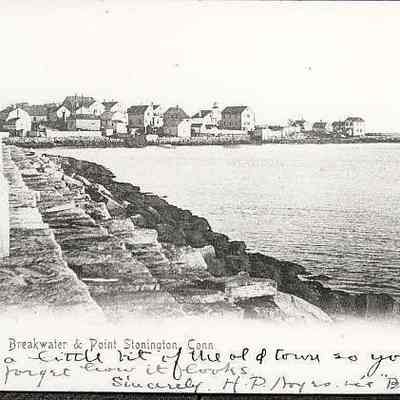 Breakwater & Point Stonington Conn.
a little bit of the old town so yo
forget how it looks.
Sincerely, H.P. "B